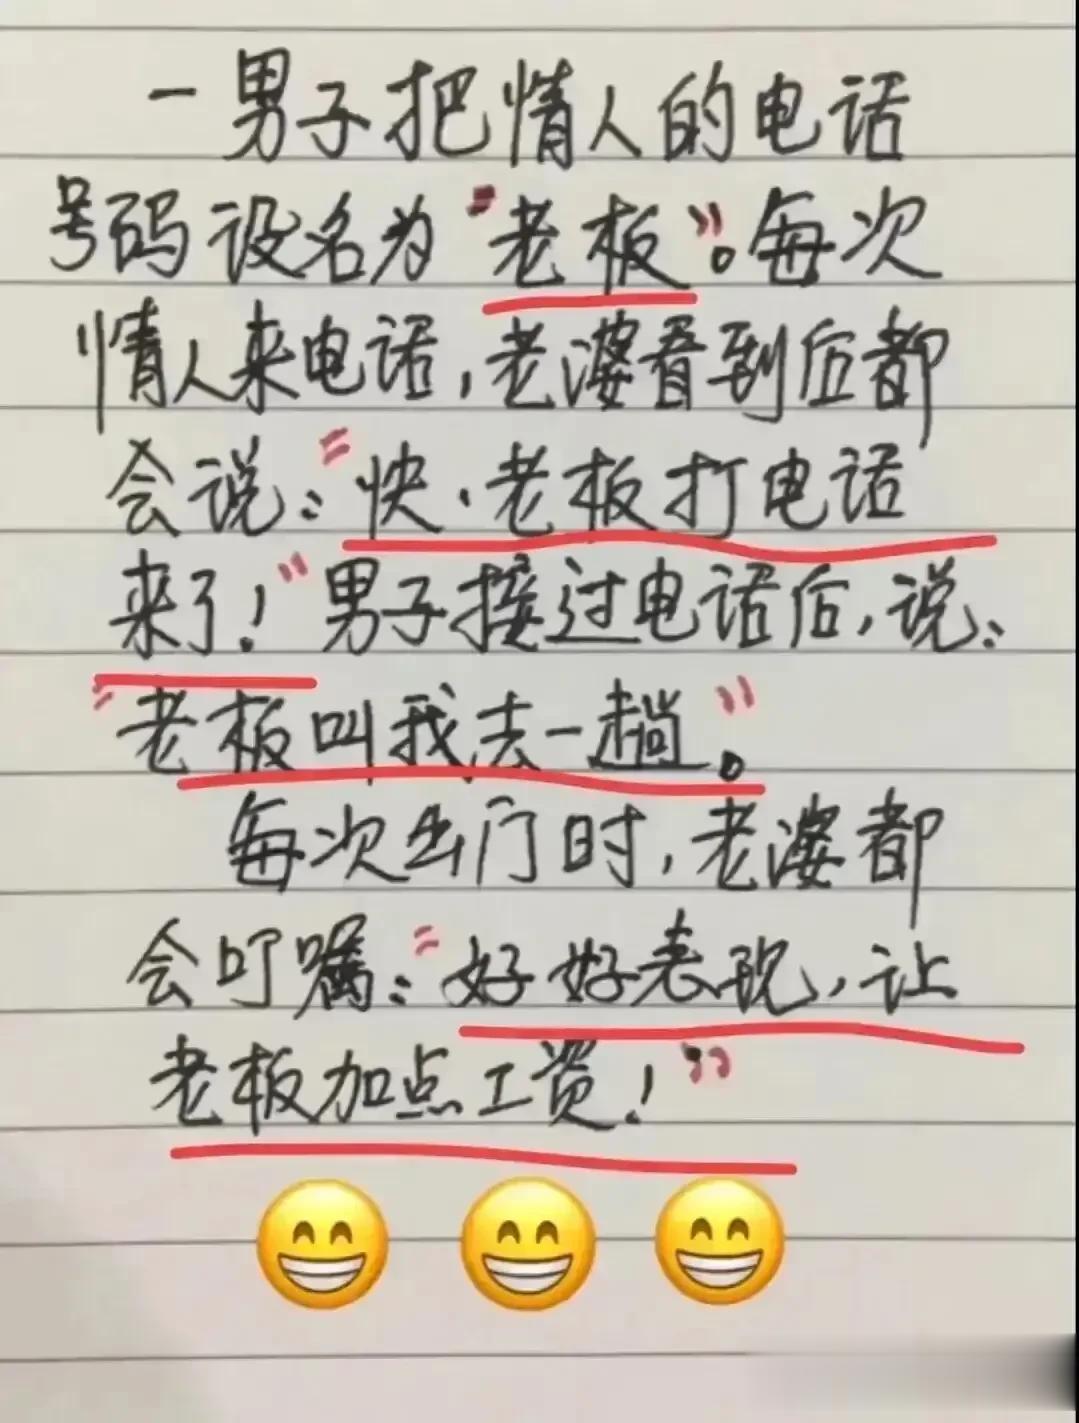 一男子把情人的电话
号码设名为“老板”。每次
情人来电话,老婆看到后都
会说:“快.老板打电话
来了!”男子接过电话后,说:
“老板叫我去一趟”。
每次出门时,老婆都
会叮嘱:“好好表现,让
老板加点工资!”